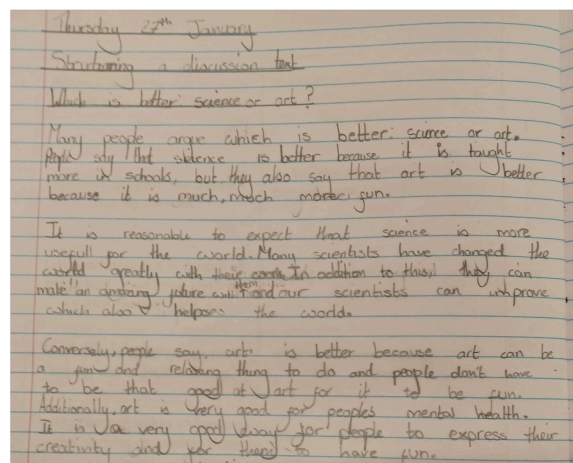 Thursday 27th January
Structuring a discussion text
Which is better: science or art?
Many people argue which is better: science or art.
People say that science is better because it is taught
more in schools, but they also say that art is better
because it is much, much more fun.
It is reasonable to expect that science is more
usefull for the world. Many scientists have changed the
world greatly with their work. In addition to this, they can
make an amazing future with them and our scientists can improve
which also helps the world.
Conversely, people say, art is better because art can be
a fun and relaxing thing to do and people don't have
to be that good at art for it to be fun.
Additionally, art is very good for people's mental health.
It is a very good way for people to express their
creativity and for them to have fun.